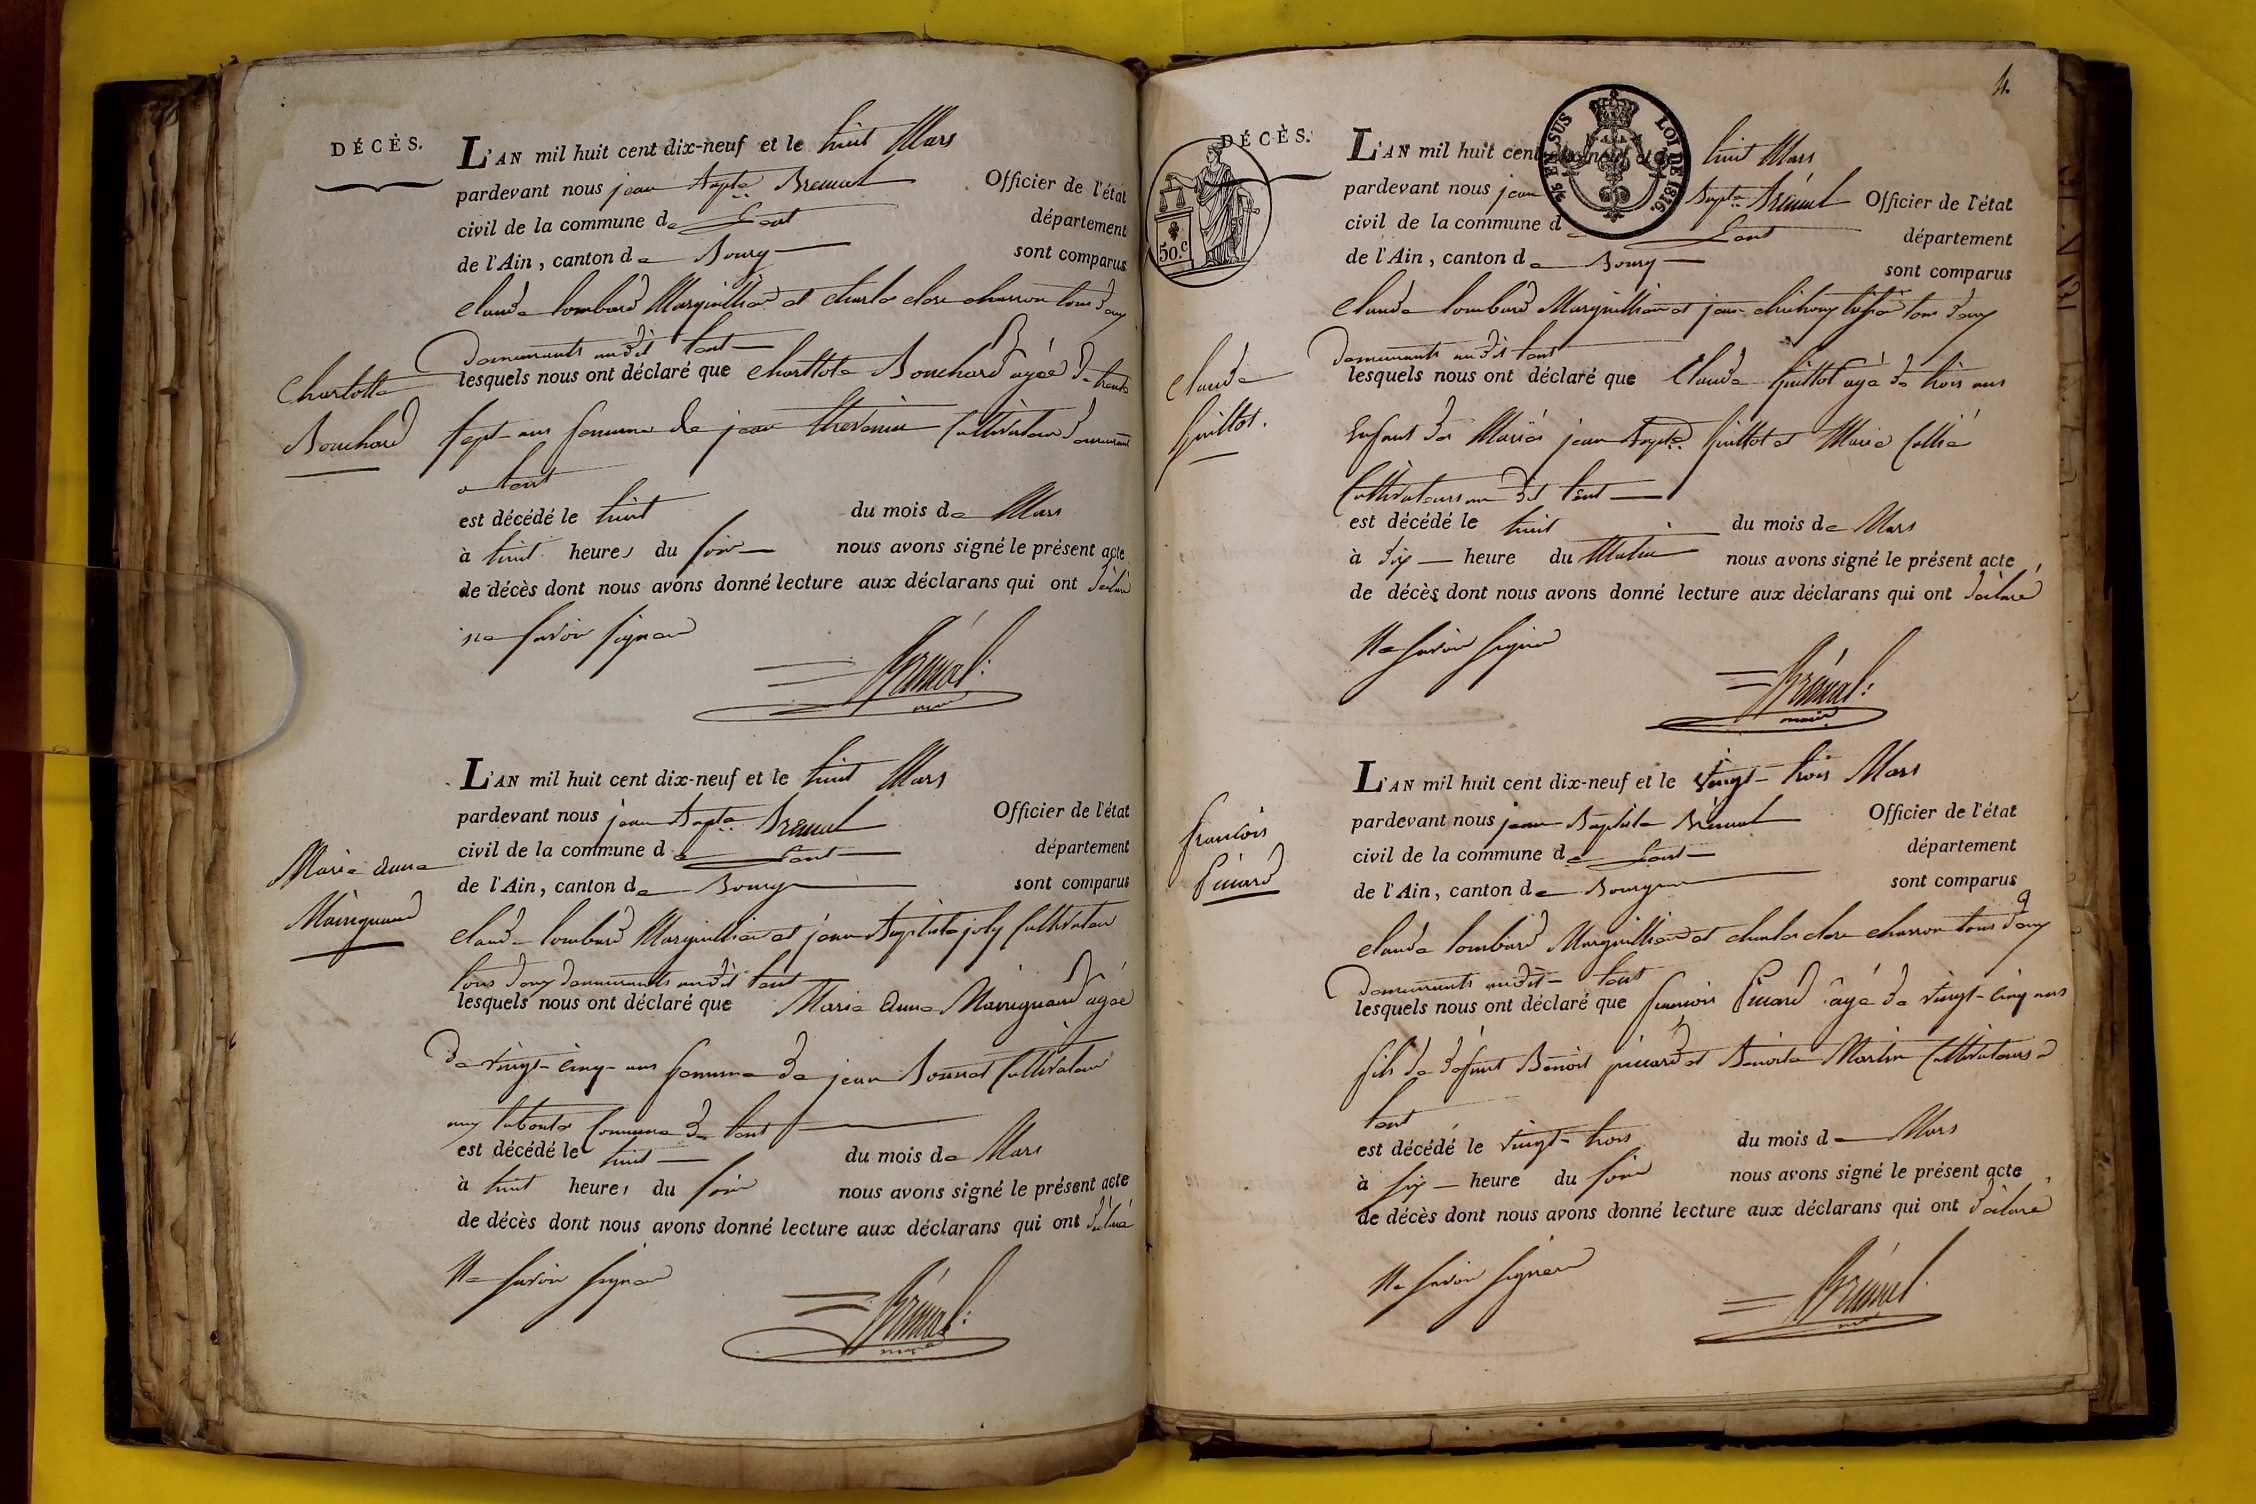 DÉCÈS.
L'AN mil huit cent dix-neuf et le huit Mars
pardevant nous jean Bapte Bremal Officier de l'état
civil de la commune de Lent département
de l'Ain, canton de Bourg sont comparus
Claude Lombard Marguillier et charles clere charron tous deux
demeurants audit Lent
lesquels nous ont déclaré que Charllote Bouchard agée de trente
Charlotte
Bouchard
sept ans femme de jean thevenin Cultivateur demeurant
a Lent
est décédé le huit du mois de Mars
à huit heures du soir nous avons signé le présent acte
de décès dont nous avons donné lecture aux déclarans qui ont déclaré
ne savoir signer
Brémal.
maire
L'AN mil huit cent dix-neuf et le huit Mars
pardevant nous jean Bapte Bremal Officier de l'état
civil de la commune de Lent département
de l'Ain, canton de Bourg sont comparus
Marie Anne
Mainguand
Claude Lombard Marguillier et jean Baptiste joly Cultivateur
tous deux demeurants audit Lent
lesquels nous ont déclaré que Marie Anne Mainguand agée
de vingt-cinq ans femme de jean Bonnet Cultivateur
aux Commune de Lent
est décédé le huit du mois de Mars
à huit heures du soir nous avons signé le présent acte
de décès dont nous avons donné lecture aux déclarans qui ont déclaré
Ne savoir signer
Brémal.
maire
4.
DÉCÈS.
50.c
2/5 EN SUS LOI DE 1816.
L'AN mil huit cent dix-neuf et le huit Mars
pardevant nous jean Bapte Brémal Officier de l'état
civil de la commune de Lent département
de l'Ain, canton de Bourg sont comparus
Claude Lombard Marguillier et jean tous deux
demeurants audit Lent
lesquels nous ont déclaré que Claude Guillot agé de trois ans
Claude
Guillot.
Enfant des Mariés jean Bapte Guillot et Marie Collié
Cultivateurs au dit Lent
est décédé le huit du mois de Mars
à dix heure du Matin nous avons signé le présent acte
de décès dont nous avons donné lecture aux déclarans qui ont déclaré
Ne savoir signer
Brémal.
maire
L'AN mil huit cent dix-neuf et le vingt-trois Mars
pardevant nous jean Baptiste Brémal Officier de l'état
civil de la commune de Lent département
de l'Ain, canton de Bourg sont comparus
francois
Picard
Claude Lombard Marguillier et charles clere charron tous deux
demeurants audit Lent
lesquels nous ont déclaré que francois Picard agé de vingt-cinq ans
fils de défunt Benoit picard et Benoite Martin Cultivateurs a
Lent
est décédé le vingt-trois du mois de Mars
à six heure du soir nous avons signé le présent acte
de décès dont nous avons donné lecture aux déclarans qui ont déclaré
Ne savoir signer
Brémal.
maire